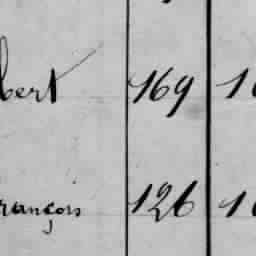 bert 169 1
rançois 126 1